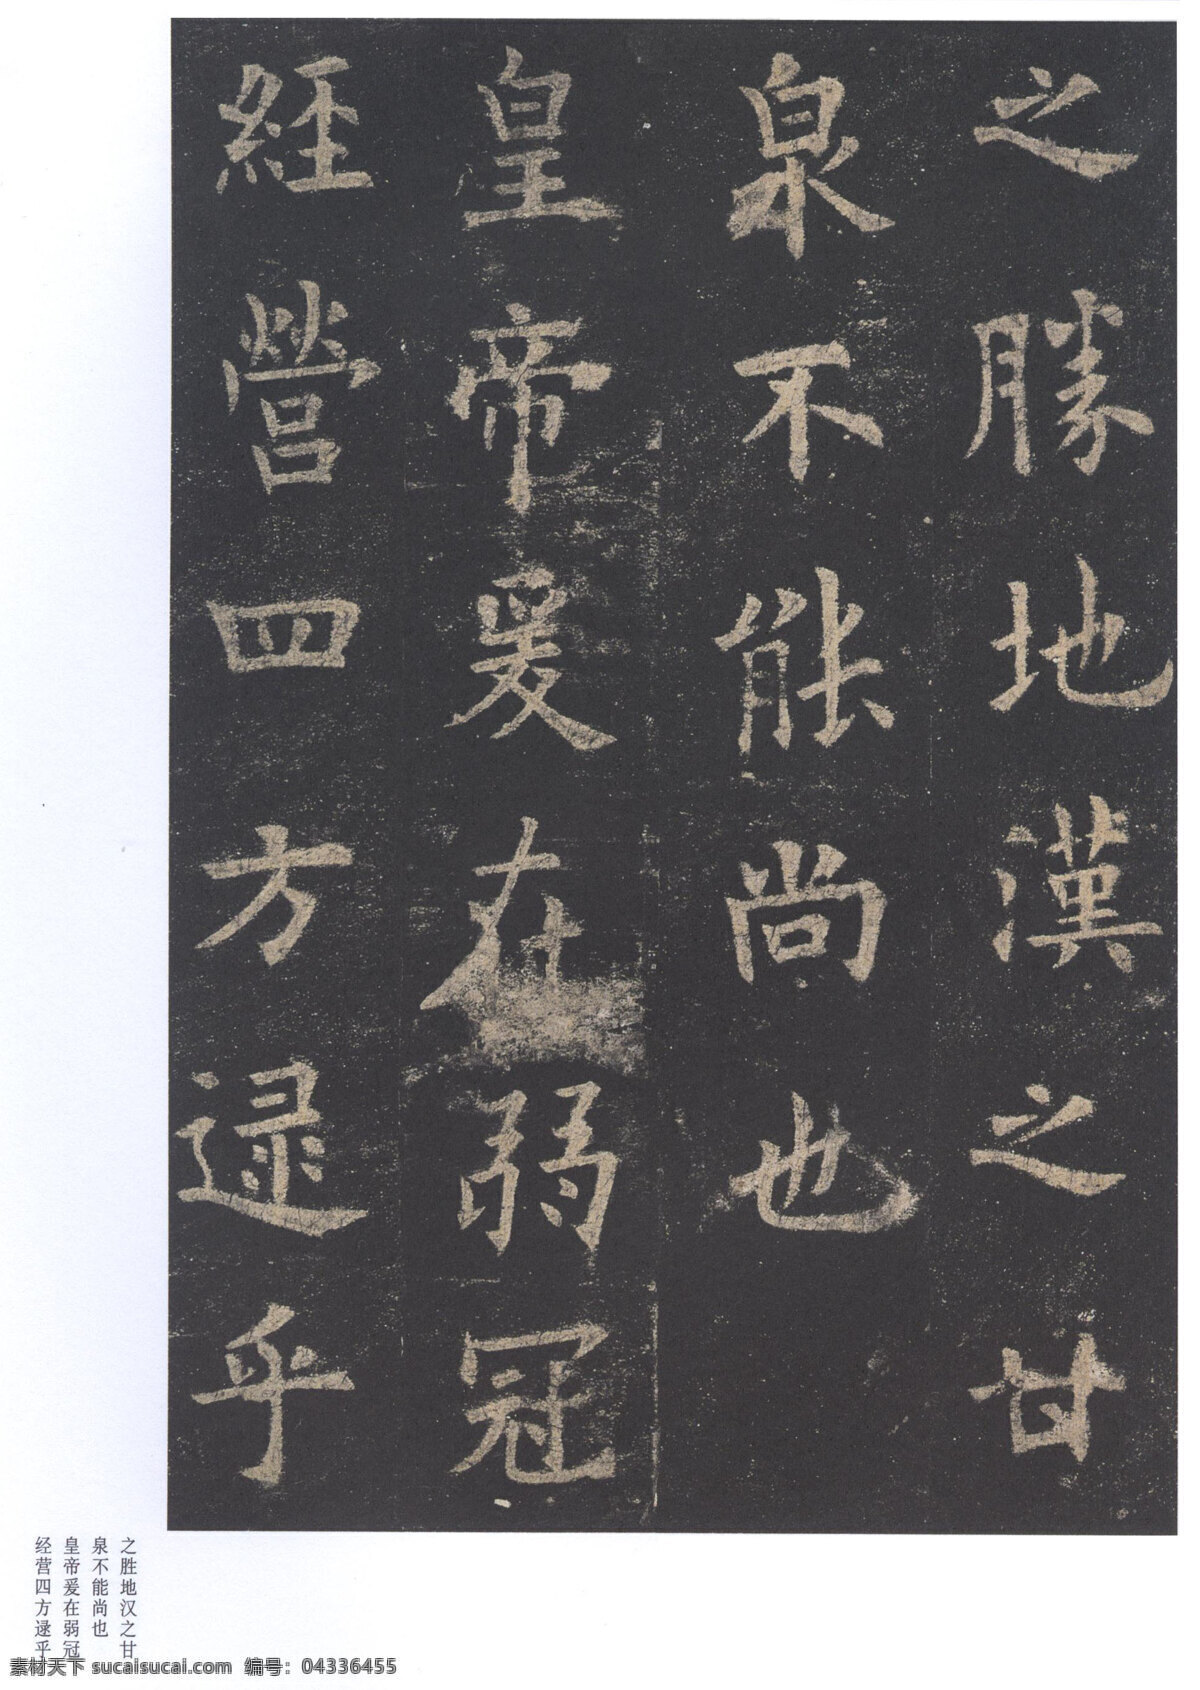 之勝地漢之甘
泉不能尚也
皇帝爰在弱冠
經營四方逯乎
之胜地汉之甘
泉不能尚也
皇帝爰在弱冠
经营四方逯乎
素材天下 sucaisucai.com 编号：04336455